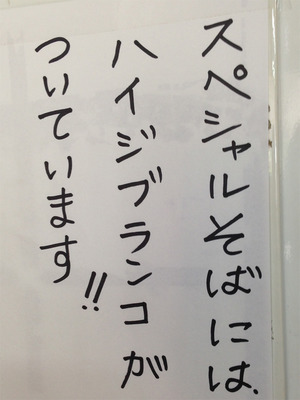 スペシャルそばには、
ハイジブランコが
ついています!!